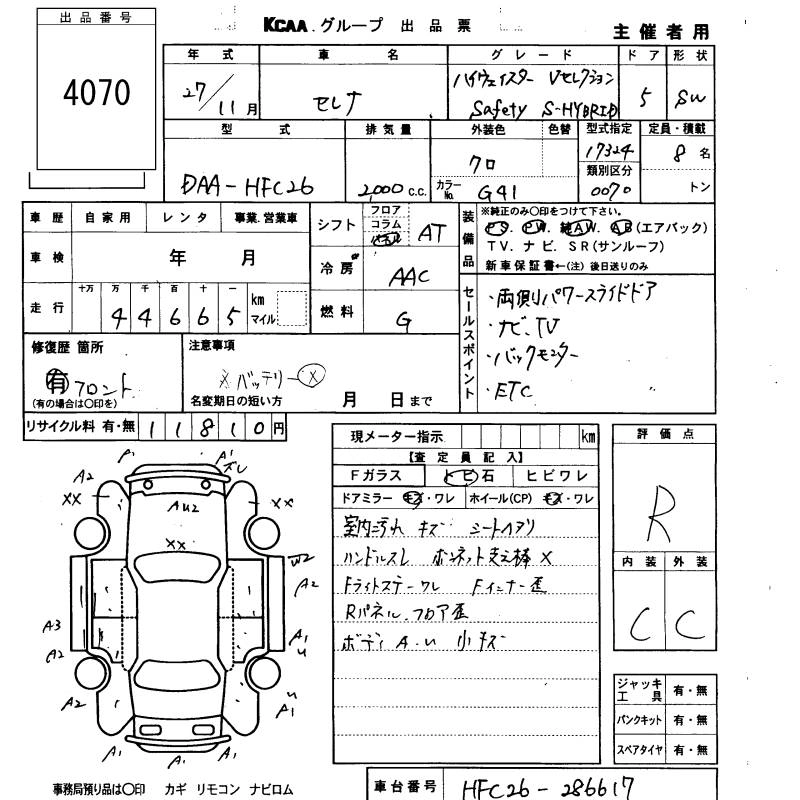 出品番号
4070
KCAA.グループ 出品票
主催者用
年式 車名 グレード ドア 形状
27/11月 セレナ ハイウェイスター Vセレクション Safety S-HYBRID 5 SW
型式 排気量 外装色 色替 型式指定 定員・積載
17324 8名
クロ 類別区分
DAA-HFC26 2,000 c.c. カラーNo. G41 0070 トン
車歴 自家用 レンタ 事業.営業車
シフト フロア コラム パネル AT
装備品 ※純正のみ○印をつけて下さい。
PS. PW. 純AW. AB(エアバック)
TV.ナビ.SR(サンルーフ)
新車保証書←(注)後日送りのみ
車検 年 月
冷房 AAC
走行 十万 万 千 百 十 一
44665 km マイル
燃料 G
セールスポイント
・両側パワースライドドア
・ナビ.TV
・バックモニター
・ETC
修復歴 箇所
有 フロント
(有の場合は○印を)
注意事項
※バッテリー×
名変期日の短い方 月 日まで
リサイクル料 有・無 11810円
現メーター指示 km
【査定員記入】
Fガラス トビ石 ヒビワレ
ドアミラー キズ・ワレ ホイール(CP) キズ・ワレ
室内汚れ キズ シートヘタリ
ハンドルスレ ボンネット支え棒×
Fライトステーワレ Fインナー歪
Rパネル.フロア歪
ボディ A.U 小キズ
評価点
R
内装 外装
C C
A1 A1 ズレ
A2 A2
XX XX
AU2
XX
W2
A2
A3
A2 A1
U
A2 U
A1
A1 A1 A1
ジャッキ工具 有・無
パンクキット 有・無
スペアタイヤ 有・無
事務局預り品は○印 カギ リモコン ナビロム
車台番号 HFC26-286617